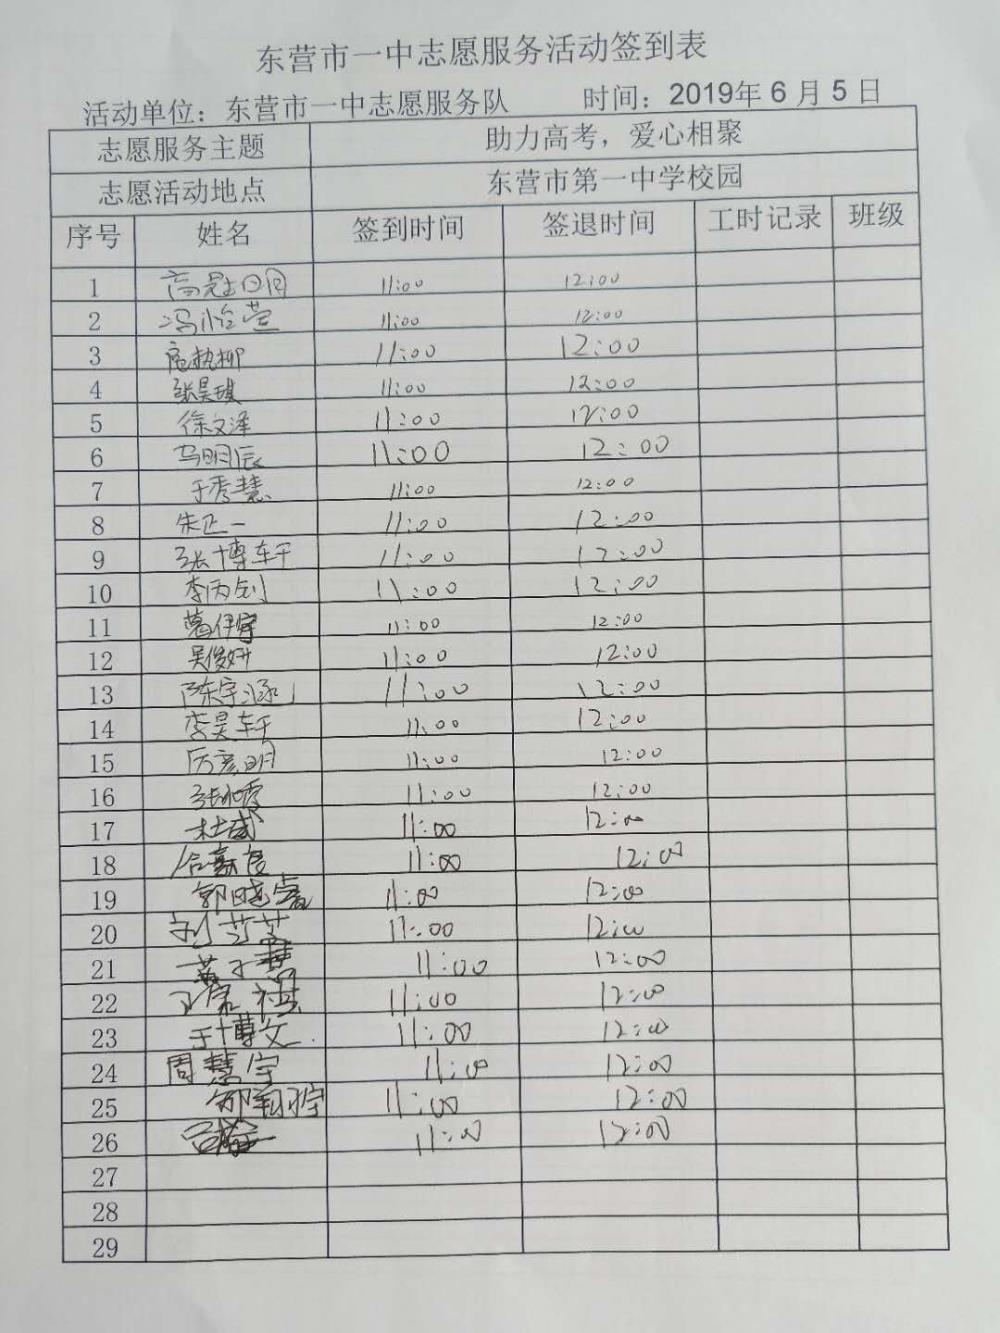 东营市一中志愿服务活动签到表
活动单位：东营市一中志愿服务队 时间：2019年6月5日
志愿服务主题 助力高考，爱心相聚
志愿活动地点 东营市第一中学校园
序号 姓名 签到时间 签退时间 工时记录 班级
1 高冠明 11:00 12:00
2 冯怡萱 11:00 12:00
3 11:00 12:00
4 张昊琪 11:00 12:00
5 徐文泽 11:00 12:00
6 马明辰 11:00 12:00
7 于秀慧 11:00 12:00
8 朱正一 11:00 12:00
9 张博轩 11:00 12:00
10 李丙剑 11:00 12:00
11 葛伊宁 11:00 12:00
12 吴俊妍 11:00 12:00
13 陈宇涵 11:00 12:00
14 李昊轩 11:00 12:00
15 厉彦明 11:00 12:00
16 11:00 12:00
17 杜威 11:00 12:00
18 11:00 12:00
19 郭晓 11:00 12:00
20 刘 11:00 12:00
21 11:00 12:00
22 11:00 12:00
23 于博文 11:00 12:00
24 周慧宇 11:00 12:00
25 11:00 12:00
26 11:00 12:00
27
28
29